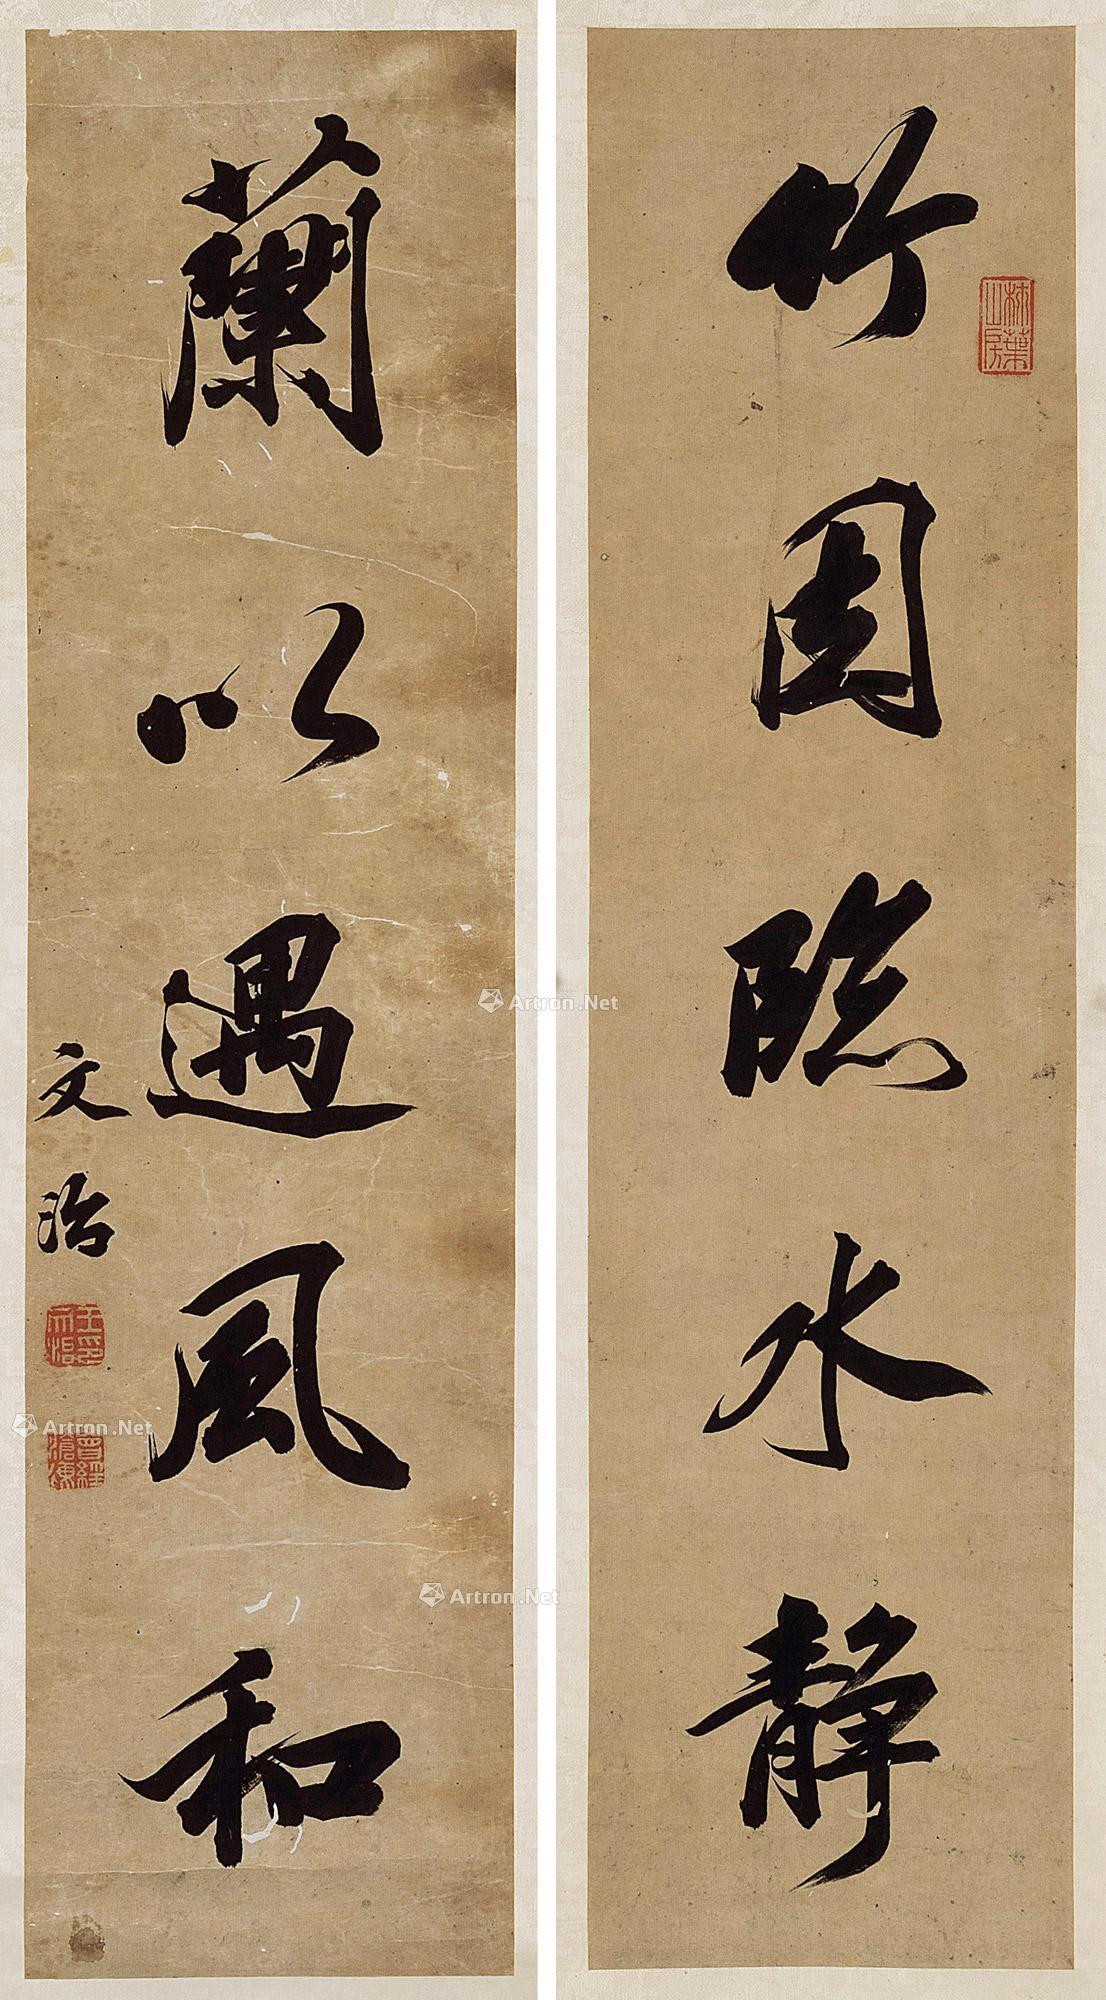 竹因臨水靜
蘭以遇風和
文治
柿葉山房
王文治印
曾經滄海
Artron.Net
Artron.Net
Artron.Net